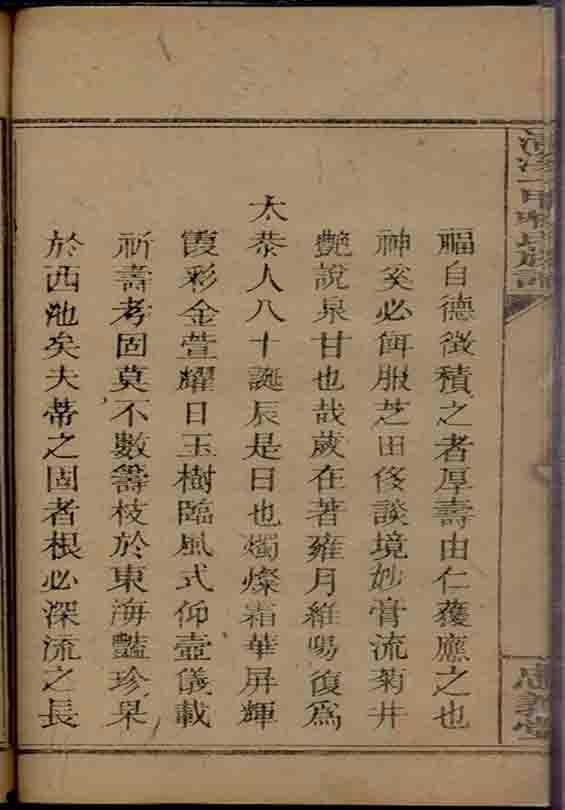 氏族譜
堂
福自德徵積之者厚壽由仁獲應之也
神奚必餌服芝田侈談境妙膏流菊井
艷說泉甘也哉歲在著雍月維暢復爲
太恭人八十誕辰是日也燭燦霜華屏輝
霞彩金萱耀日玉樹臨風式仰壼儀載
祈壽考固莫不數籌枝於東海豔珍果
於西池矣夫蒂之固者根必深流之長